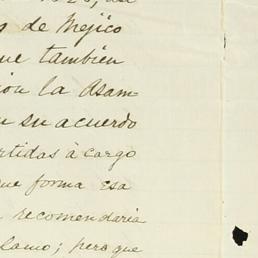 de Mejico
que tambien
la Asam-
su acuerdo
rtidas à cargo
que forma esa
recomendaria
lamo; pero que